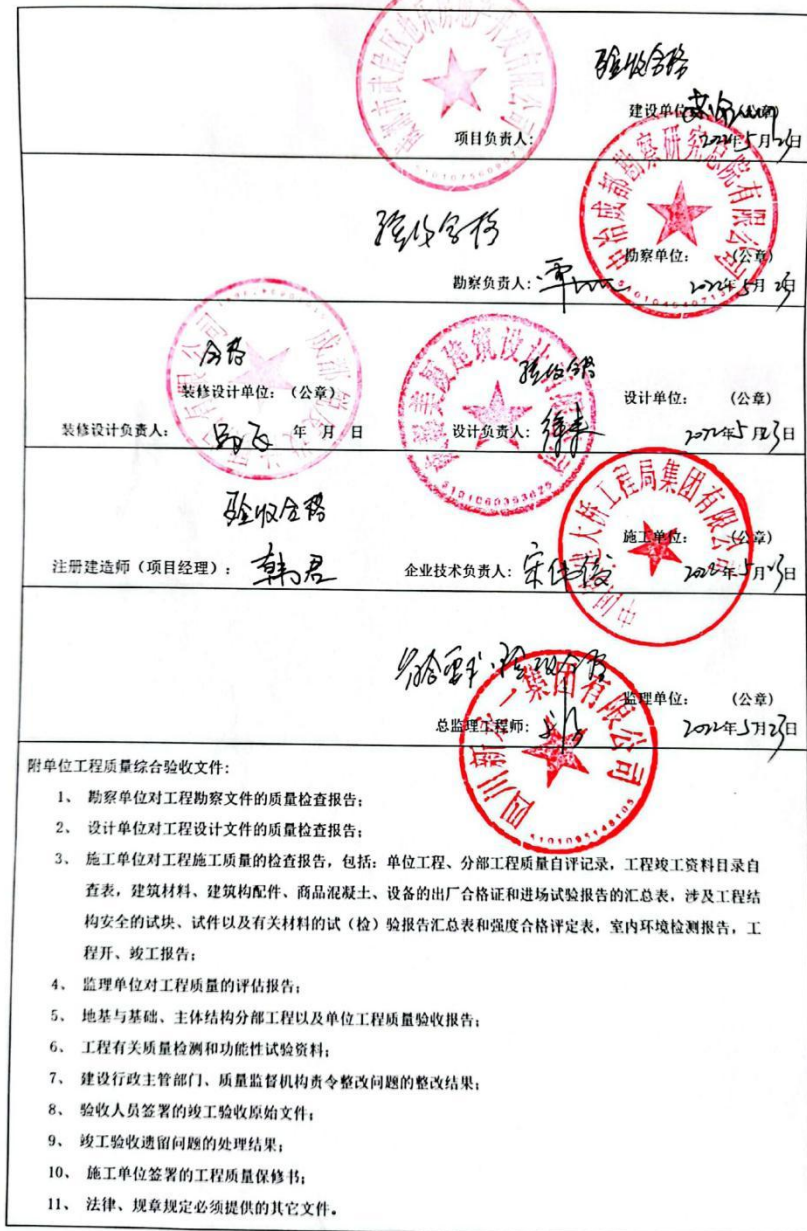 验收合格
建设单位: (公章)
项目负责人:
2022年5月23日
中冶成都勘察研究总院有限公司
验收合格
勘察单位: (公章)
勘察负责人:
2022年5月23日
合格
验收合格
装修设计单位: (公章)
设计单位: (公章)
装修设计负责人: 年 月 日
设计负责人:
2022年5月23日
5101060353629
验收合格
大桥工程局集团有限公司
施工单位: (公章)
注册建造师(项目经理): 韩君
企业技术负责人:
2022年5月23日
验收合格
监理单位: (公章)
总监理工程师:
2022年5月23日
集团有限公司
5101095148105
附单位工程质量综合验收文件:
1、 勘察单位对工程勘察文件的质量检查报告;
2、 设计单位对工程设计文件的质量检查报告;
3、 施工单位对工程施工质量的检查报告,包括:单位工程、分部工程质量自评记录,工程竣工资料目录自
查表,建筑材料、建筑构配件、商品混凝土、设备的出厂合格证和进场试验报告的汇总表,涉及工程结
构安全的试块、试件以及有关材料的试(检)验报告汇总表和强度合格评定表,室内环境检测报告,工
程开、竣工报告;
4、 监理单位对工程质量的评估报告;
5、 地基与基础、主体结构分部工程以及单位工程质量验收报告;
6、 工程有关质量检测和功能性试验资料;
7、 建设行政主管部门、质量监督机构责令整改问题的整改结果;
8、 验收人员签署的竣工验收原始文件;
9、 竣工验收遗留问题的处理结果;
10、 施工单位签署的工程质量保修书;
11、 法律、规章规定必须提供的其它文件。